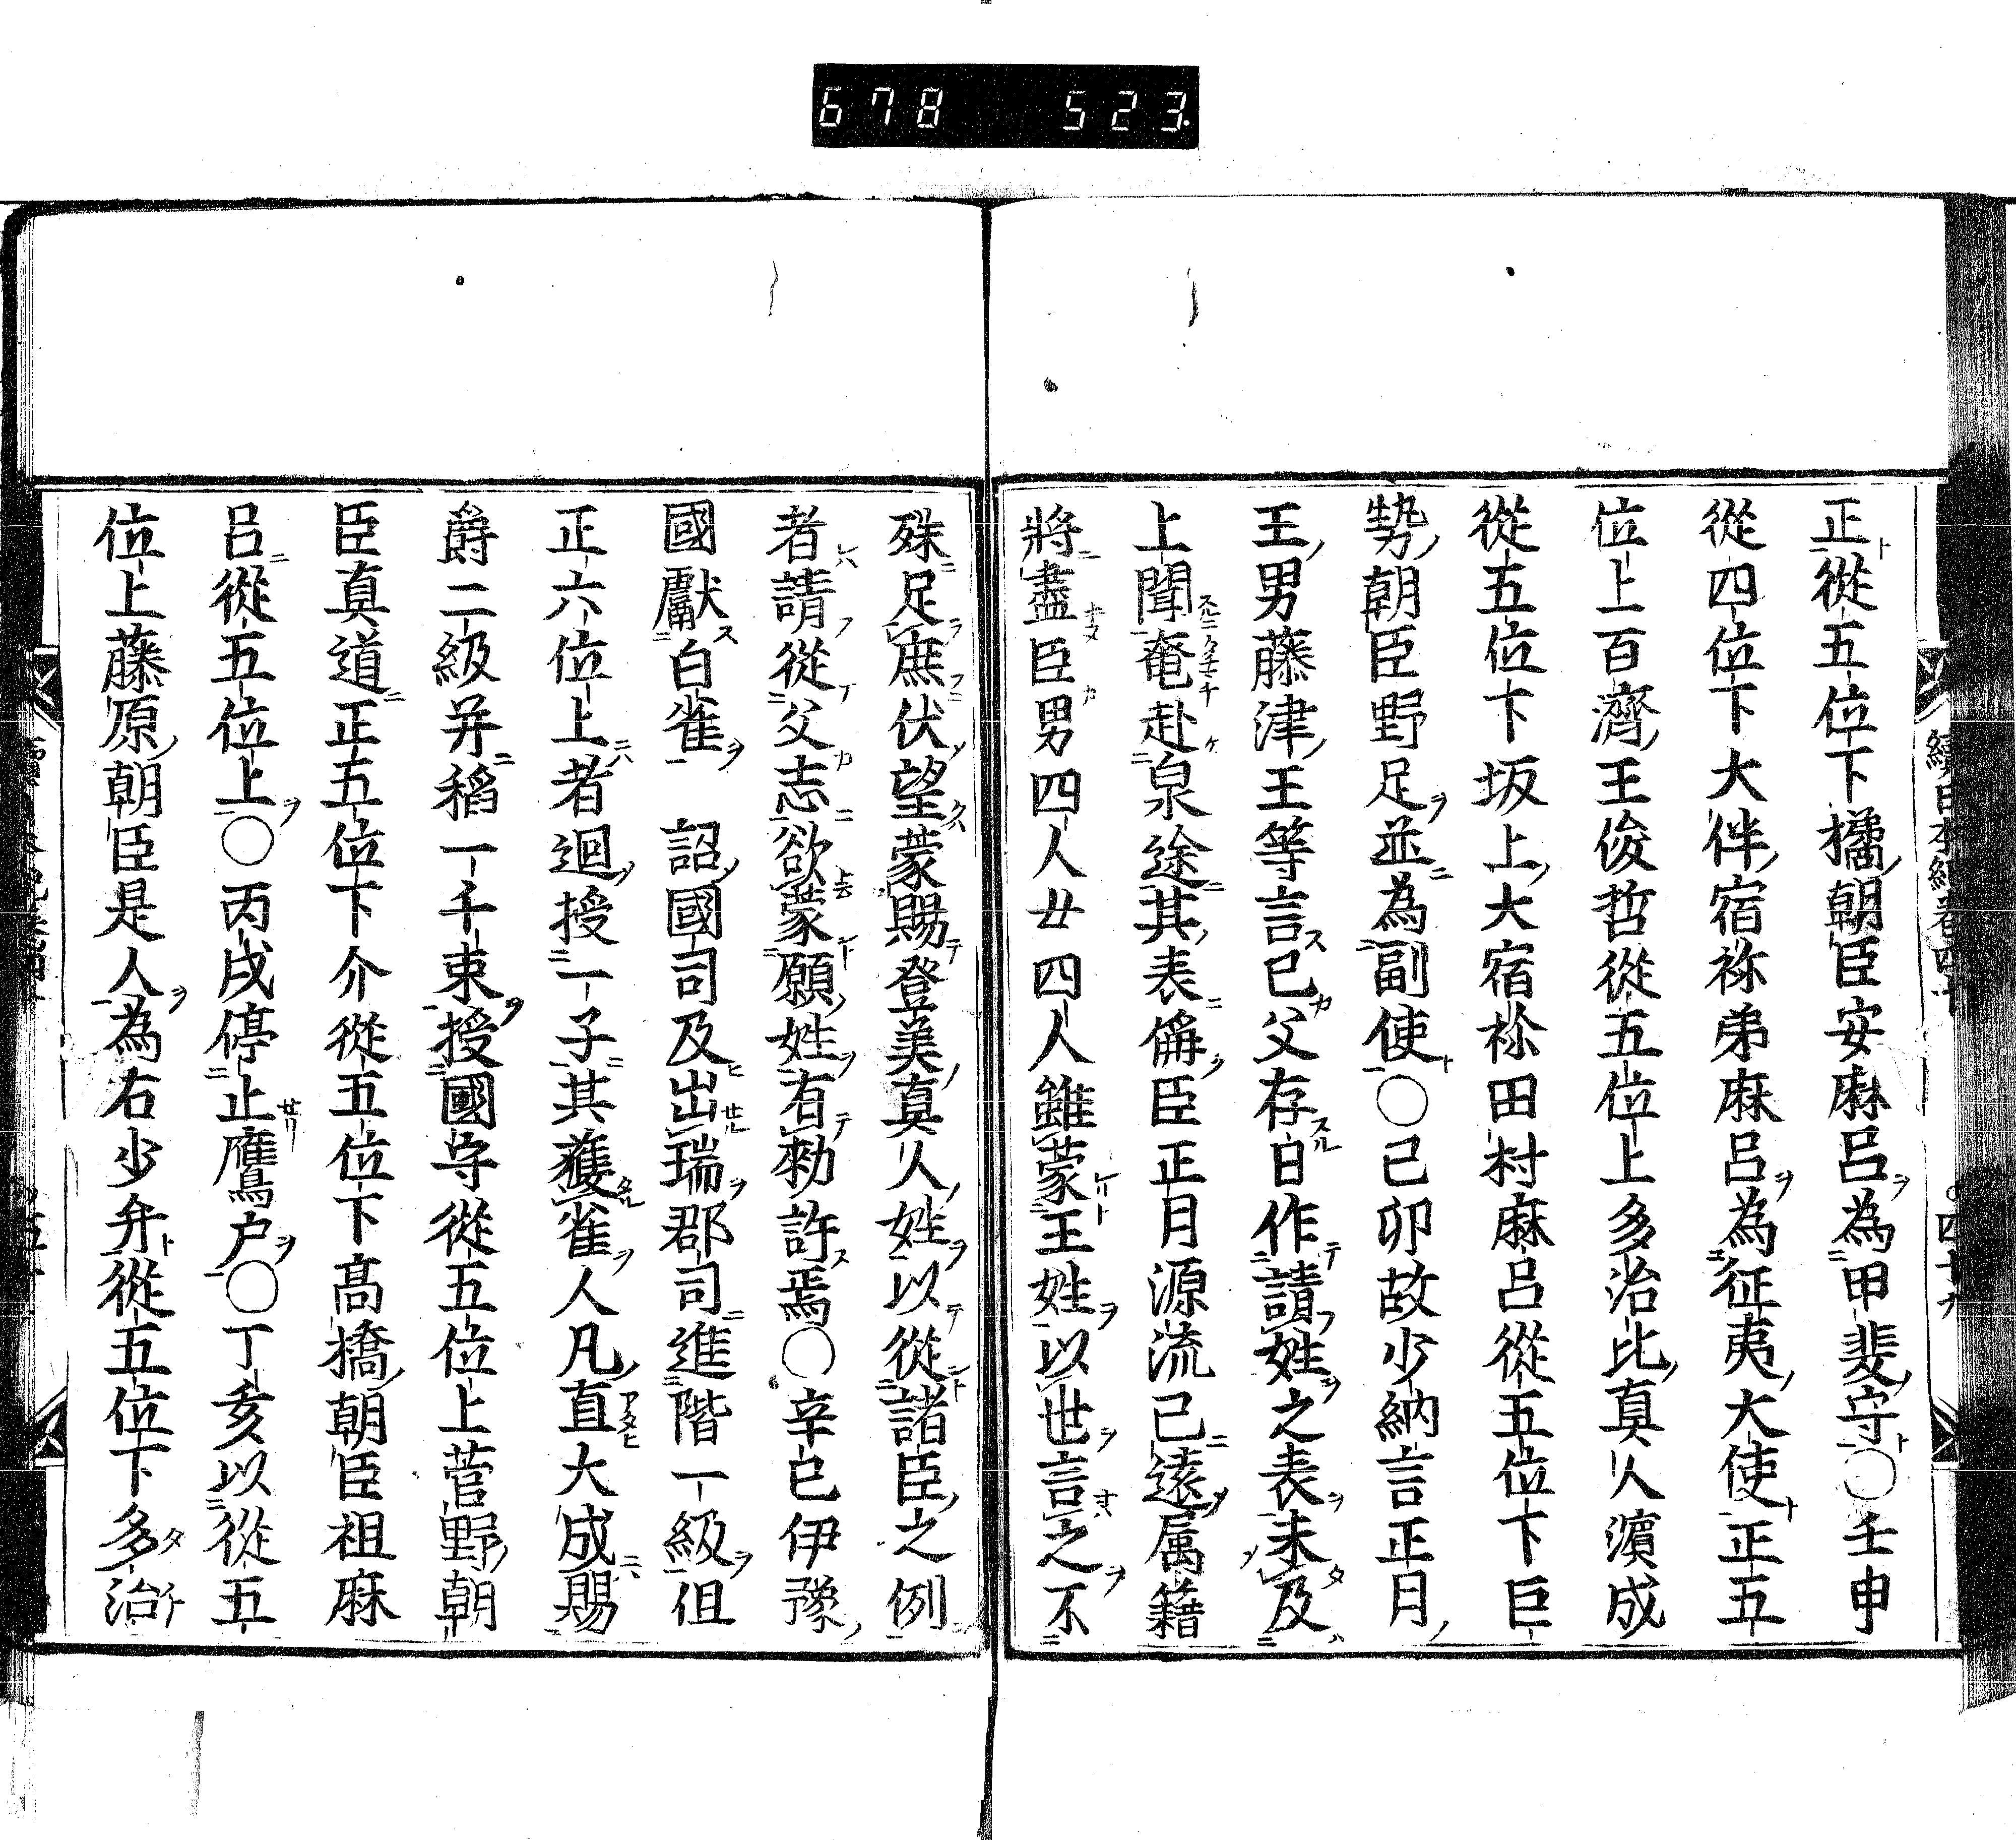 678 523
正從五位下橘朝臣安麻呂為甲斐守○壬申
從四位下大伴宿祢弟麻呂為征夷大使正五
位上百濟王俊哲從五位上多治比真人濵成
從五位下坂上大宿祢田村麻呂從五位下巨
勢朝臣野足並為副使○己卯故少納言正月
王男藤津王等言已父存日作請姓之表未及
上聞奄赴泉途其表偁臣正月源流已遠属籍
將盡臣男四人廿四人雖蒙王姓以世言之不
殊疋庶伏望蒙賜登美真人姓以從諸臣之例
者請從父志欲蒙願姓有勑許焉○辛巳伊豫
國獻白雀 詔國司及出瑞郡司進階一級但
正六位上者迴授一子其獲雀人凡直大成賜
爵二級并稻一千束授國守從五位上菅野朝
臣真道正五位下介從五位下高橋朝臣祖麻
呂從五位上○丙戌停止鷹户○丁亥以從五
位上藤原朝臣是人為右少弁從五位下多治